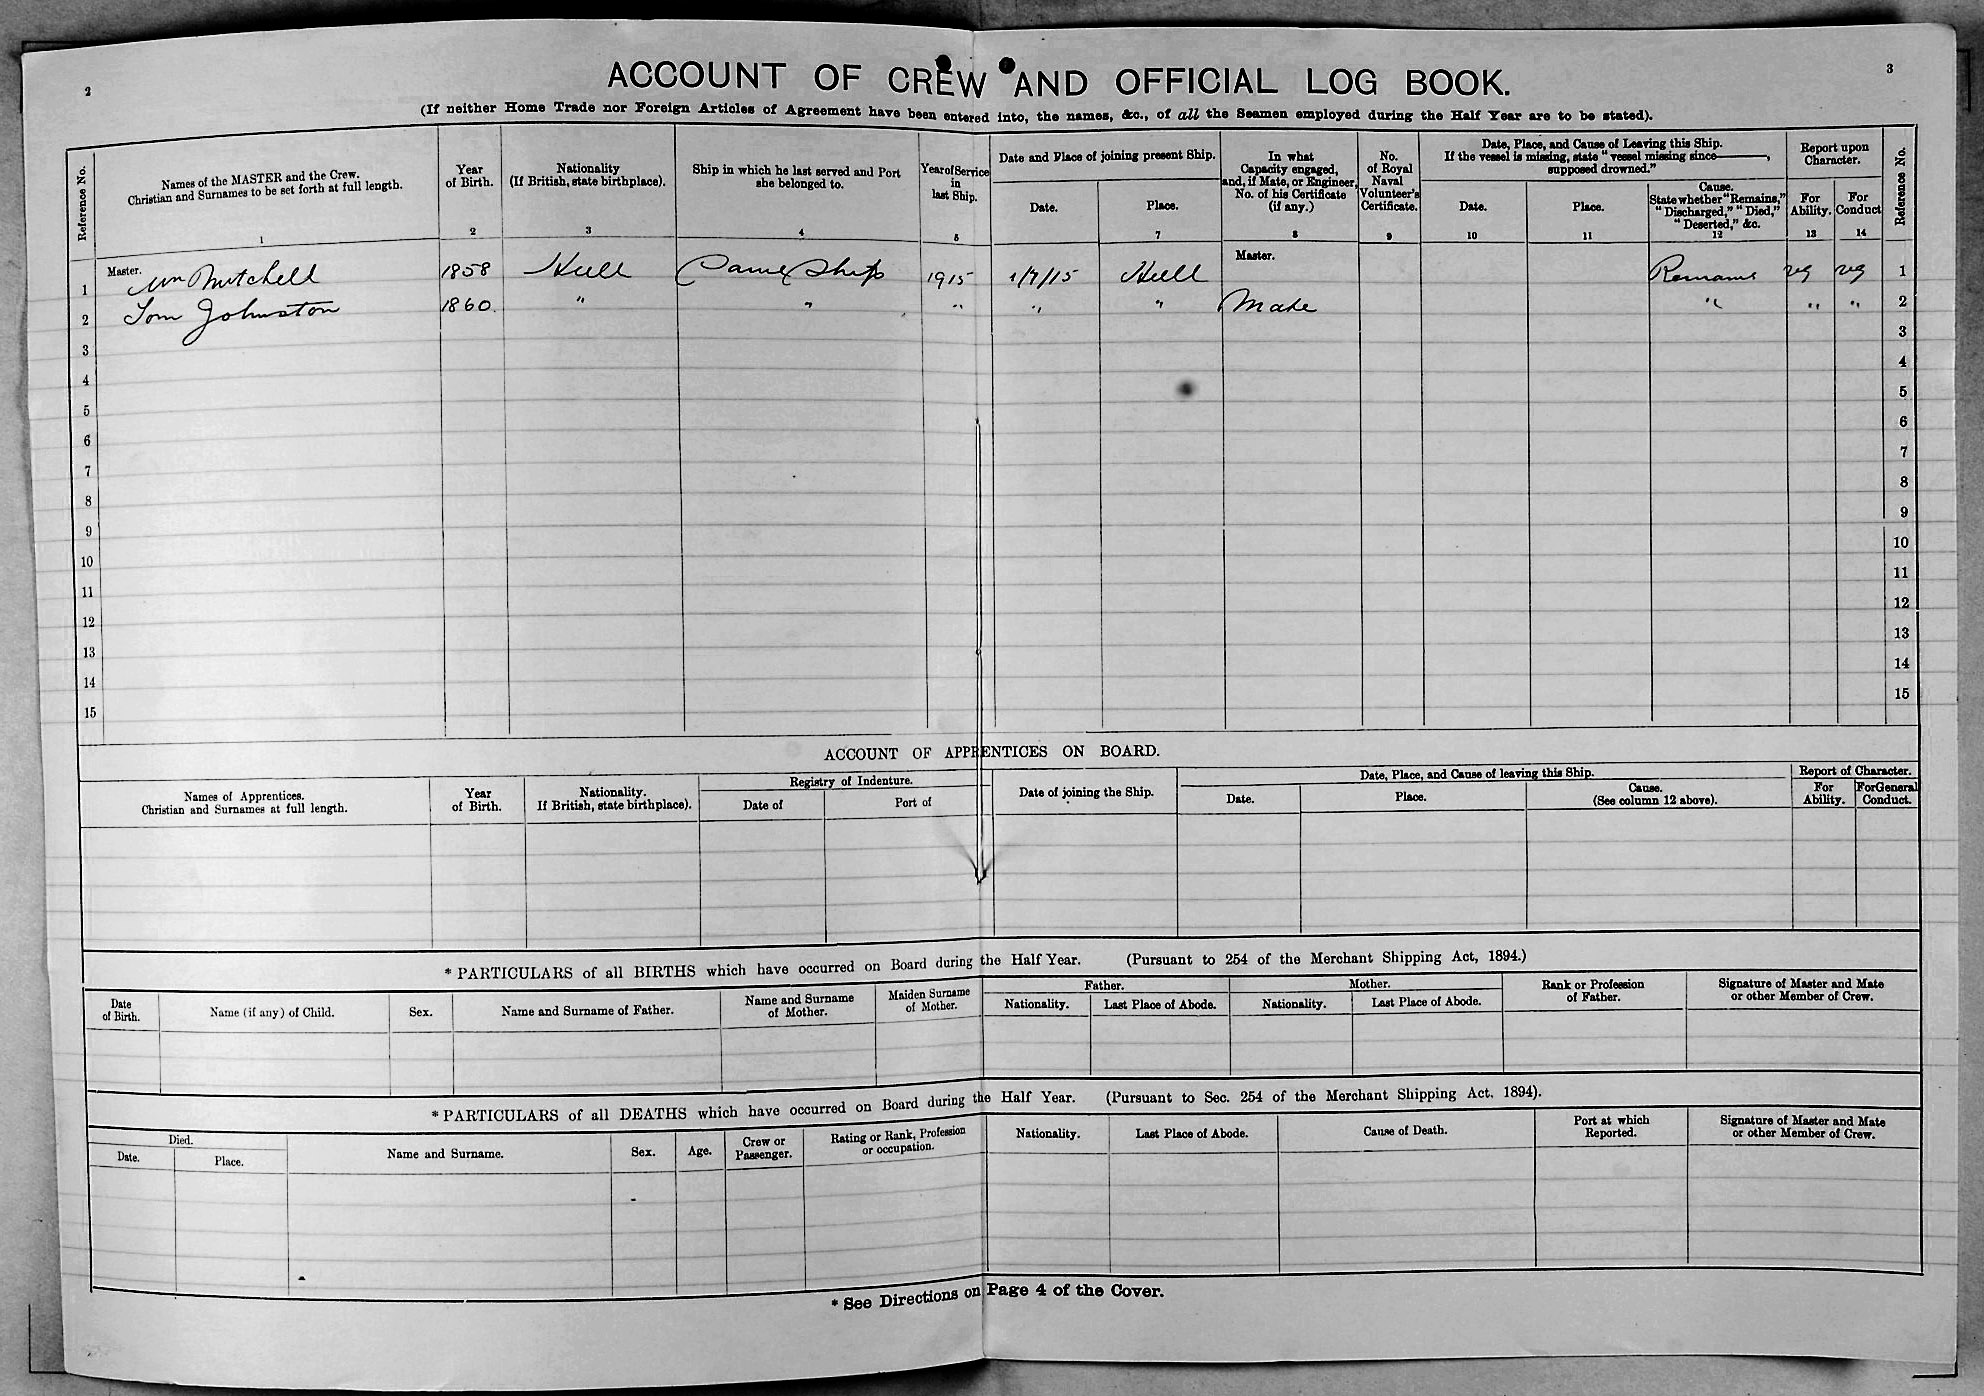 2
3
ACCOUNT OF CREW AND OFFICIAL LOG BOOK.
(If neither Home Trade nor Foreign Articles of Agreement have been entered into, the names, &c., of all the Seamen employed during the Half Year are to be stated).
Reference No.
Names of the MASTER and the Crew.
Christian and Surnames to be set forth at full length.
1
Year
of Birth.
2
Nationality
(If British, state birthplace).
3
Ship in which he last served and Port
she belonged to.
4
Year of Service
in
last Ship.
5
Date and Place of joining present Ship.
Date.
Place.
7
In what
Capacity engaged,
and, if Mate, or Engineer,
No. of his Certificate
(if any.)
8
No.
of Royal
Naval
Volunteer's
Certificate.
9
Date, Place, and Cause of Leaving this Ship.
If the vessel is missing, state "vessel missing since———,
supposed drowned."
Date.
10
Place.
11
Cause.
State whether "Remains,"
"Discharged," "Died,"
"Deserted," &c.
12
Report upon
Character.
For
Ability.
13
For
Conduct
14
Reference No.
1 Master. Wm Mitchell 1858 Hull Same Ship 1915 1/7/15 Hull Master. Remains vg vg 1
2 Tom Johnston 1860. " " " " " Mate " " " 2
3 3
4 4
5 5
6 6
7 7
8 8
9 9
10 10
11 11
12 12
13 13
14 14
15 15
ACCOUNT OF APPRENTICES ON BOARD.
Names of Apprentices.
Christian and Surnames at full length.
Year
of Birth.
Nationality.
If British, state birthplace).
Registry of Indenture.
Date of
Port of
Date of joining the Ship.
Date, Place, and Cause of leaving this Ship.
Date.
Place.
Cause.
(See column 12 above).
Report of Character.
For
Ability.
For General
Conduct.
* PARTICULARS of all BIRTHS which have occurred on Board during the Half Year. (Pursuant to 254 of the Merchant Shipping Act, 1894.)
Date
of Birth.
Name (if any) of Child.
Sex.
Name and Surname of Father.
Name and Surname
of Mother.
Maiden Surname
of Mother.
Father.
Nationality.
Last Place of Abode.
Mother.
Nationality.
Last Place of Abode.
Rank or Profession
of Father.
Signature of Master and Mate
or other Member of Crew.
* PARTICULARS of all DEATHS which have occurred on Board during the Half Year. (Pursuant to Sec. 254 of the Merchant Shipping Act. 1894).
Died.
Date.
Place.
Name and Surname.
Sex.
Age.
Crew or
Passenger.
Rating or Rank, Profession
or occupation.
Nationality.
Last Place of Abode.
Cause of Death.
Port at which
Reported.
Signature of Master and Mate
or other Member of Crew.
* See Directions on Page 4 of the Cover.